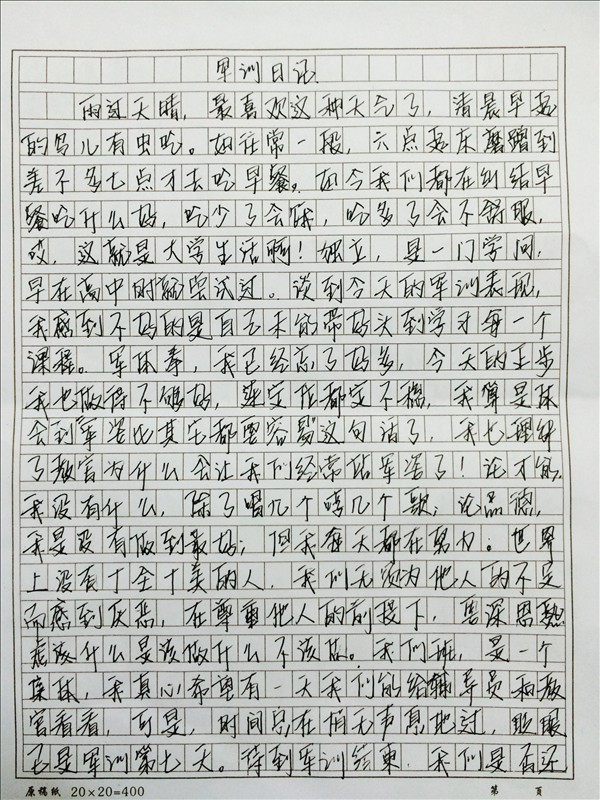 军训日记
雨过天晴，最喜欢这种天气了，清晨早起
的鸟儿有虫吃。如往常一般，六点起床磨蹭到
差不多七点才去吃早餐。如今我们都在纠结早
餐吃什么好，吃少了会饿，吃多了会不舒服，
哎，这就是大学生活啊！独立，是一门学问，
早在高中时就尝试过。谈到今天的军训表现，
我感到不好的是自己未能带好头到学才每一个
课程。军体拳，我已经忘了好多，今天的正步
我也做得不够好，连定住都定不稳，我算是体
会到军姿比其它都要容易这句话了，我也理解
了教官为什么会让我们经常站军姿了！论才能，
我没有什么，除了唱几个嘻几个歌；论品德，
我是没有做到最好；但我每天都在努力。世界
上没有十全十美的人，我们无须为他人的不足
而感到厌恶，在尊重他人的前提下，要深思熟
虑该什么是该做什么不该做。我们班，是一个
集体，我真心希望有一天我们能给辅导员和教
官看看，可是，时间总在悄无声息地过，眨眼
已是军训第七天。待到军训结束，我们是否还
原稿纸 20×20=400 第 页